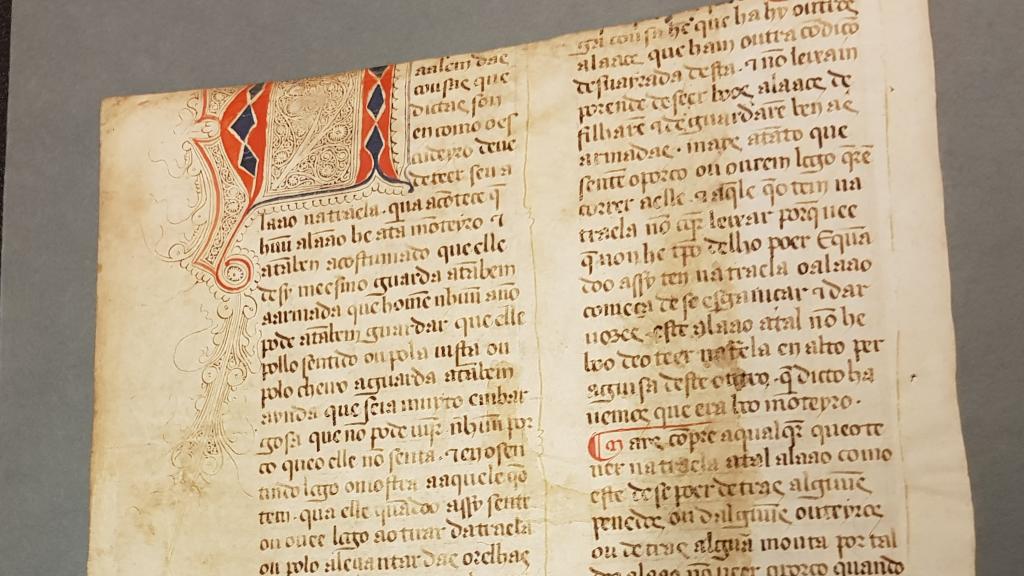 aalem das
cousas que
dictas son
en como o es
cudeyro deue
de teer seu a
laão na traela. qua acõtece q̃
hũu alaão he atã mõteyro ⁊
atãben acostumado que elle
desy meesmo guarda atãbem
aarmada que home nhũu anõ
pode atãbem guardar que elle
pollo sentido ou pola uista ou
polo cheiro aguarda atãbem
auida que seia muyto embar
gosa que nõ pode uĩjr nhũu por
co que o elle nõ senta. ⁊ en o sen
tindo logo o mostra aaquele q̃o
tem. qua elle quãdo assy sente
ou ouue logo ao tirar da traela
ou polo aleuantar das orelhas
gũa cousa he que ha hy outros
alaãos que ham outra condiço
desuairada desta. ⁊ nõ leixam
porende de seer boos alaãos de
filharẽ ⁊ de guardarẽ ben as
armadas. mais atãto que
sentẽ o porco ou ouuem logo q̃rẽ
correr a elle. ⁊ aq̃le q̃o tem na
traela nõ q̃r leixar porq̃ uee
q̃ aon he tp̃o de lho poer E quã
do assy ten na traela o alaão
começa de se esganiçar ⁊ dar
uozes. este alaão atal nõ he
boo de o teer na t̃ela en alto per
aguisa deste outro. q̃ dicto ha
uemos que era boo mõteyro.
Mais cõpre a qualq̃r que o te
uer na traela atal alaão como
este de se poer de tras algũus
penedos, ou dalgũus outeyros
ou de tras algũa mouta por tal
do alaão nõ ueer o porco quando